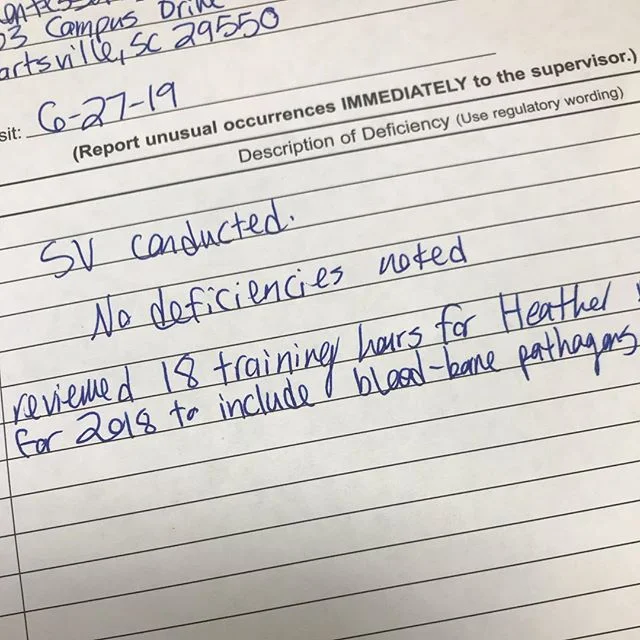 3 Campus Drive
artsville, SC 29550
sit: 6-27-19
(Report unusual occurrences IMMEDIATELY to the supervisor.)
Description of Deficiency (Use regulatory wording)
SV conducted.
No deficiencies noted
reviewed 18 training hours for Heather
for 2018 to include blood-borne pathogens